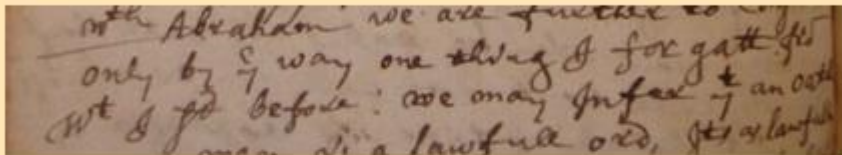 wth Abraham we are further to
only by ye way one thing I for gatt fro
Wt I sd before: we may Infer yt an oath
a lawfull ord, Its as lawfull